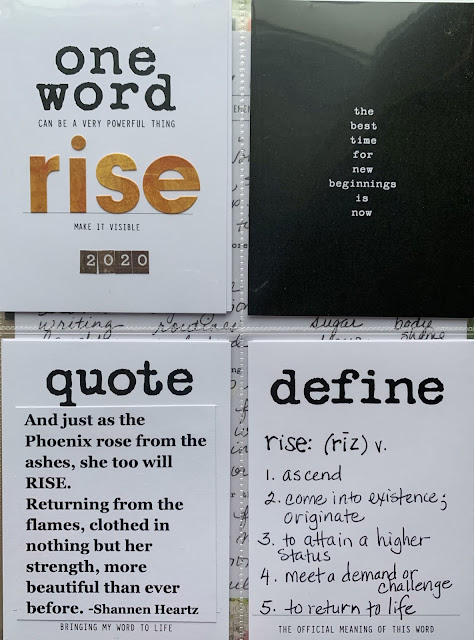 one
word
CAN BE A VERY POWERFUL THING
rise
MAKE IT VISIBLE
2020
the
best
time
for
new
beginnings
is
now
writing routines sugar body
quote
And just as the
Phoenix rose from the
ashes, she too will
RISE.
Returning from the
flames, clothed in
nothing but her
strength, more
beautiful than ever
before. -Shannen Heartz
BRINGING MY WORD TO LIFE
define
rise: (rīz) v.
1. ascend
2. come into existence;
originate
3. to attain a higher
status
4. meet a demand or
challenge
5. to return to life
THE OFFICIAL MEANING OF THIS WORD